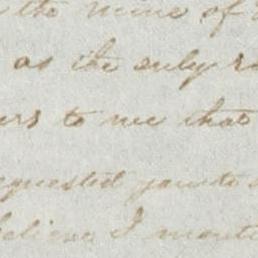 the mine of
as the only
to me that
requested you to
believe I